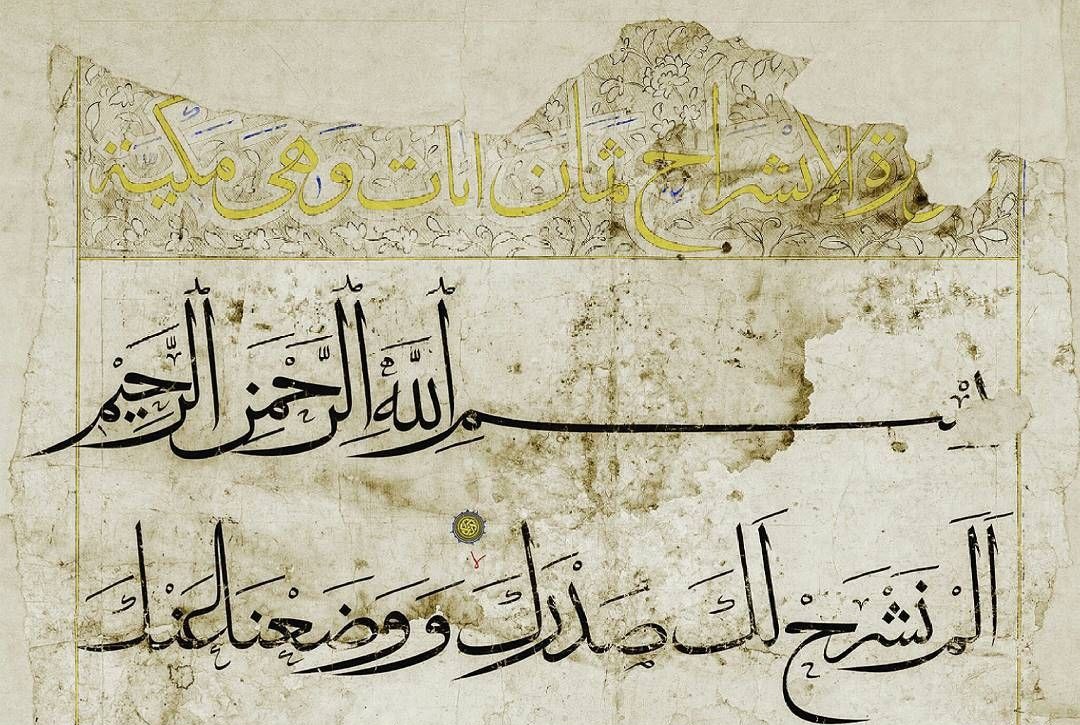 سورة الإنشراح ثمان ايات وهى مكية
بِسْمِ اللَّهِ الرَّحْمَنِ الرَّحِيمِ
اَلَمْ نَشْرَحْ لَكَ صَدْرَكَ وَوَضَعْنَا عَنْكَ